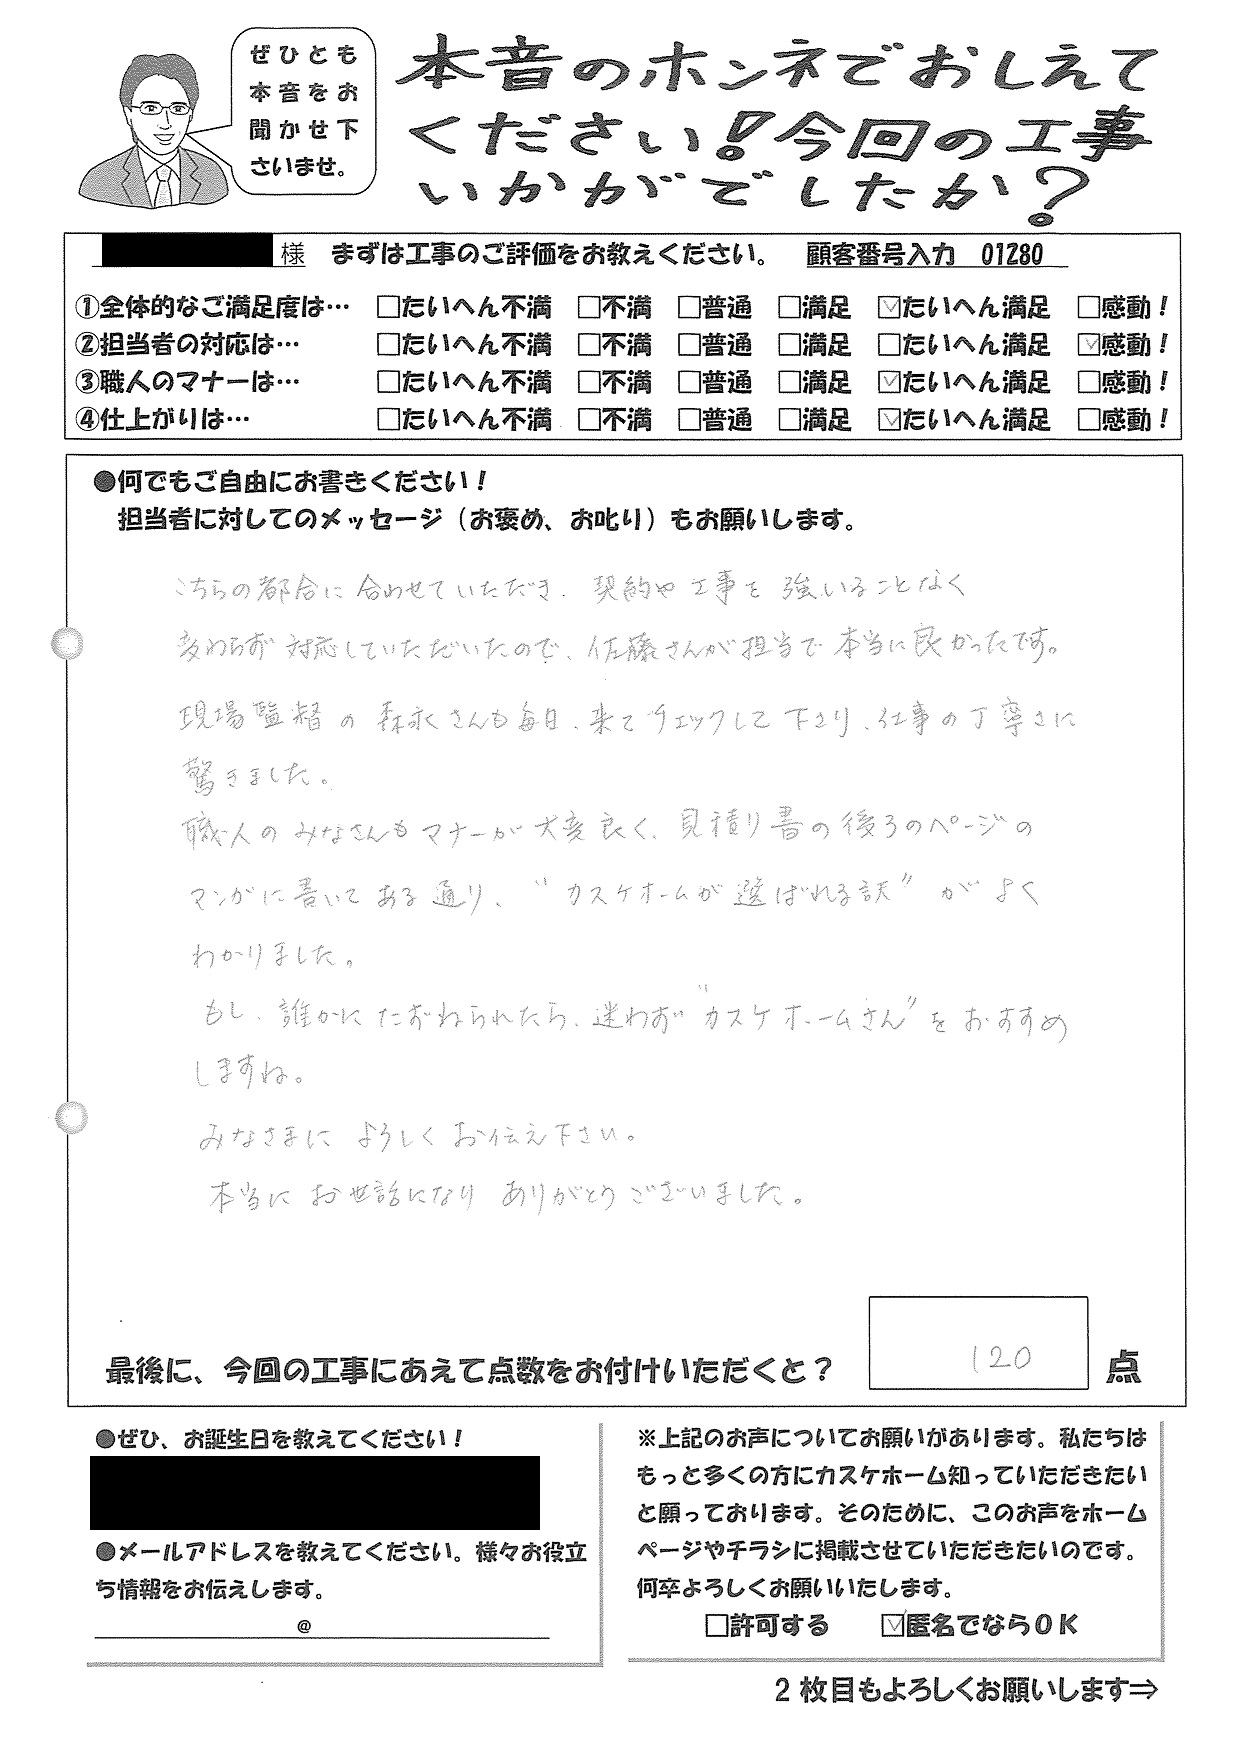 ぜひとも
本音をお
聞かせ下
さいませ。
本音のホンネでおしえて
ください！今回の工事
いかがでしたか？
様 まずは工事のご評価をお教えください。 顧客番号入力 01280
①全体的なご満足度は… □たいへん不満 □不満 □普通 □満足 ☑たいへん満足 □感動！
②担当者の対応は… □たいへん不満 □不満 □普通 □満足 □たいへん満足 ☑感動！
③職人のマナーは… □たいへん不満 □不満 □普通 □満足 ☑たいへん満足 □感動！
④仕上がりは… □たいへん不満 □不満 □普通 □満足 ☑たいへん満足 □感動！
●何でもご自由にお書きください！
担当者に対してのメッセージ（お褒め、お叱り）もお願いします。
こちらの都合に合わせていただき、契約や工事を強いることなく
変わらず対応していただいたので、佐藤さんが担当で本当に良かったです。
現場監督の森永さんも毎日、来てチェックして下さり、仕事の丁寧さに
驚きました。
職人のみなさんもマナーが大変良く、見積り書の後ろのページの
マンガに書いてある通り、“カスケホームが選ばれる訳”がよく
わかりました。
もし、誰かにたずねられたら、迷わず“カスケホームさん”をおすすめ
しますね。
みなさまによろしくお伝え下さい。
本当にお世話になりありがとうございました。
最後に、今回の工事にあえて点数をお付けいただくと？ 120 点
●ぜひ、お誕生日を教えてください！
●メールアドレスを教えてください。様々お役立
ち情報をお伝えします。
@
※上記のお声についてお願いがあります。私たちは
もっと多くの方にカスケホーム知っていただきたい
と願っております。そのために、このお声をホーム
ページやチラシに掲載させていただきたいのです。
何卒よろしくお願いいたします。
□許可する ☑匿名でならＯＫ
２枚目もよろしくお願いします⇒